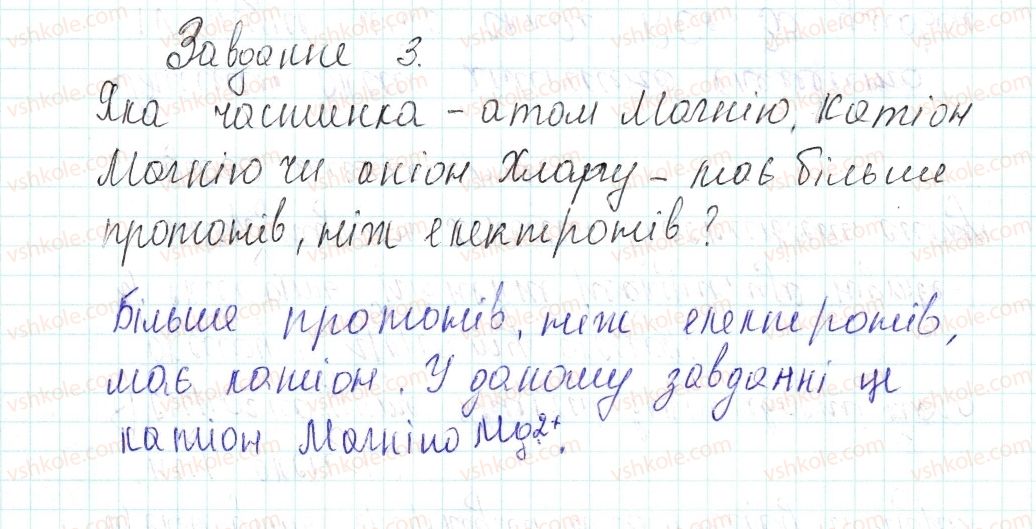 Завдання 3.
Яка частинка - атом Магнію, катіон
Магнію чи аніон Хлору - має більше
протонів, ніж електронів?
Більше протонів, ніж електронів,
має катіон. У даному завданні це
катіон Магнію Mg²⁺.